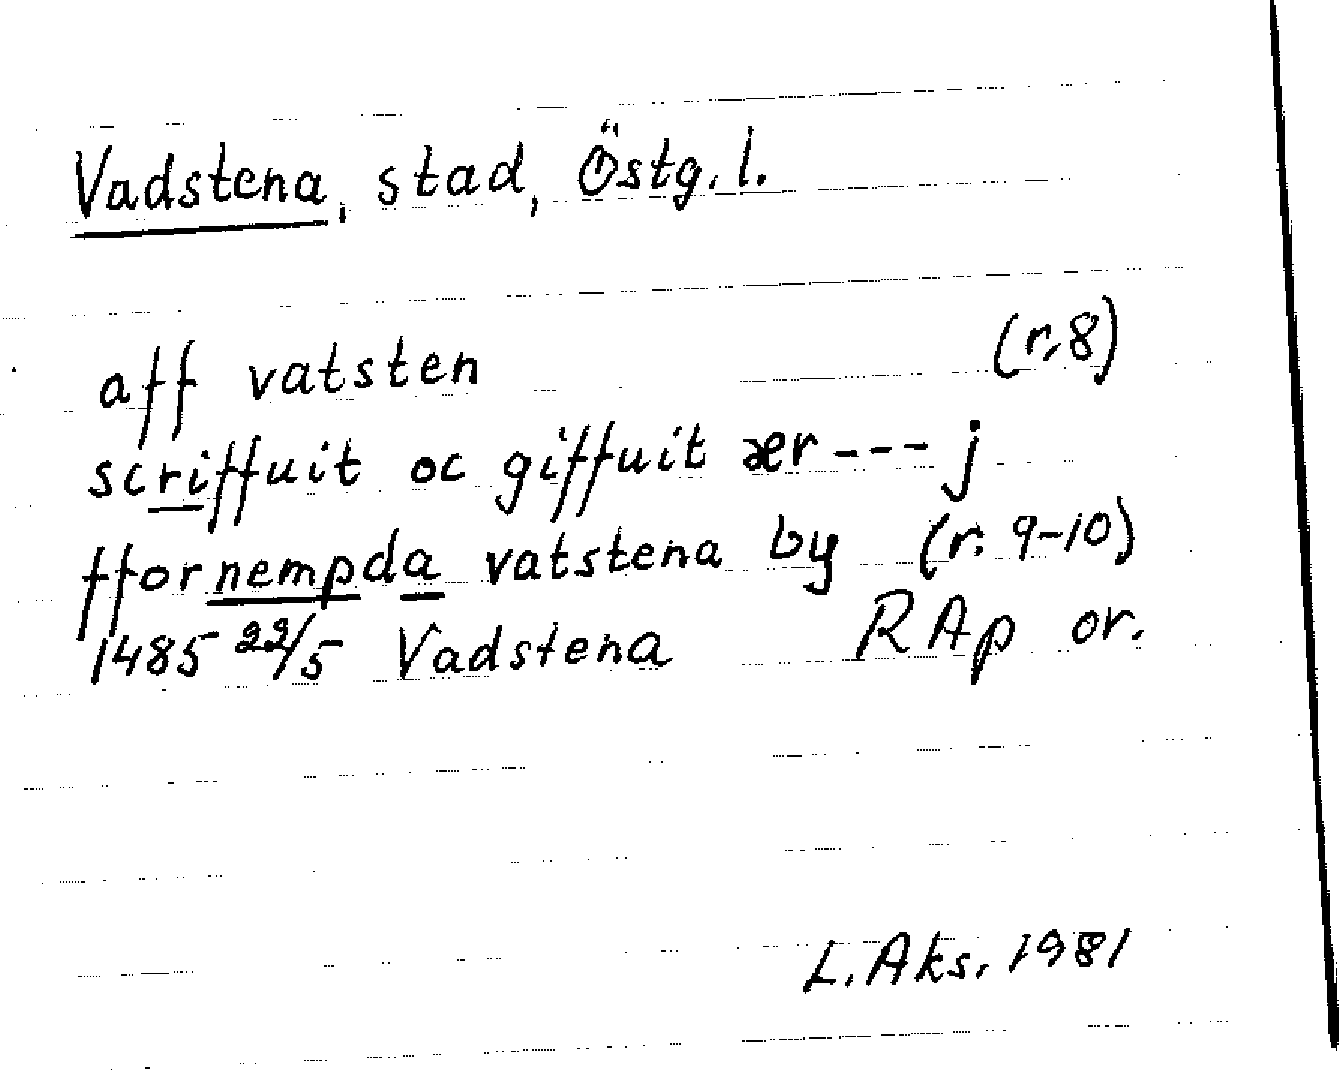 Vadstena, stad, Östg. l.
aff vatsten (r. 8)
scriffuit oc giffuit ær --- j
ffornempda vatstena by (r. 9-10)
1485 22/5 Vadstena RAp or.
L. Aks. 1981